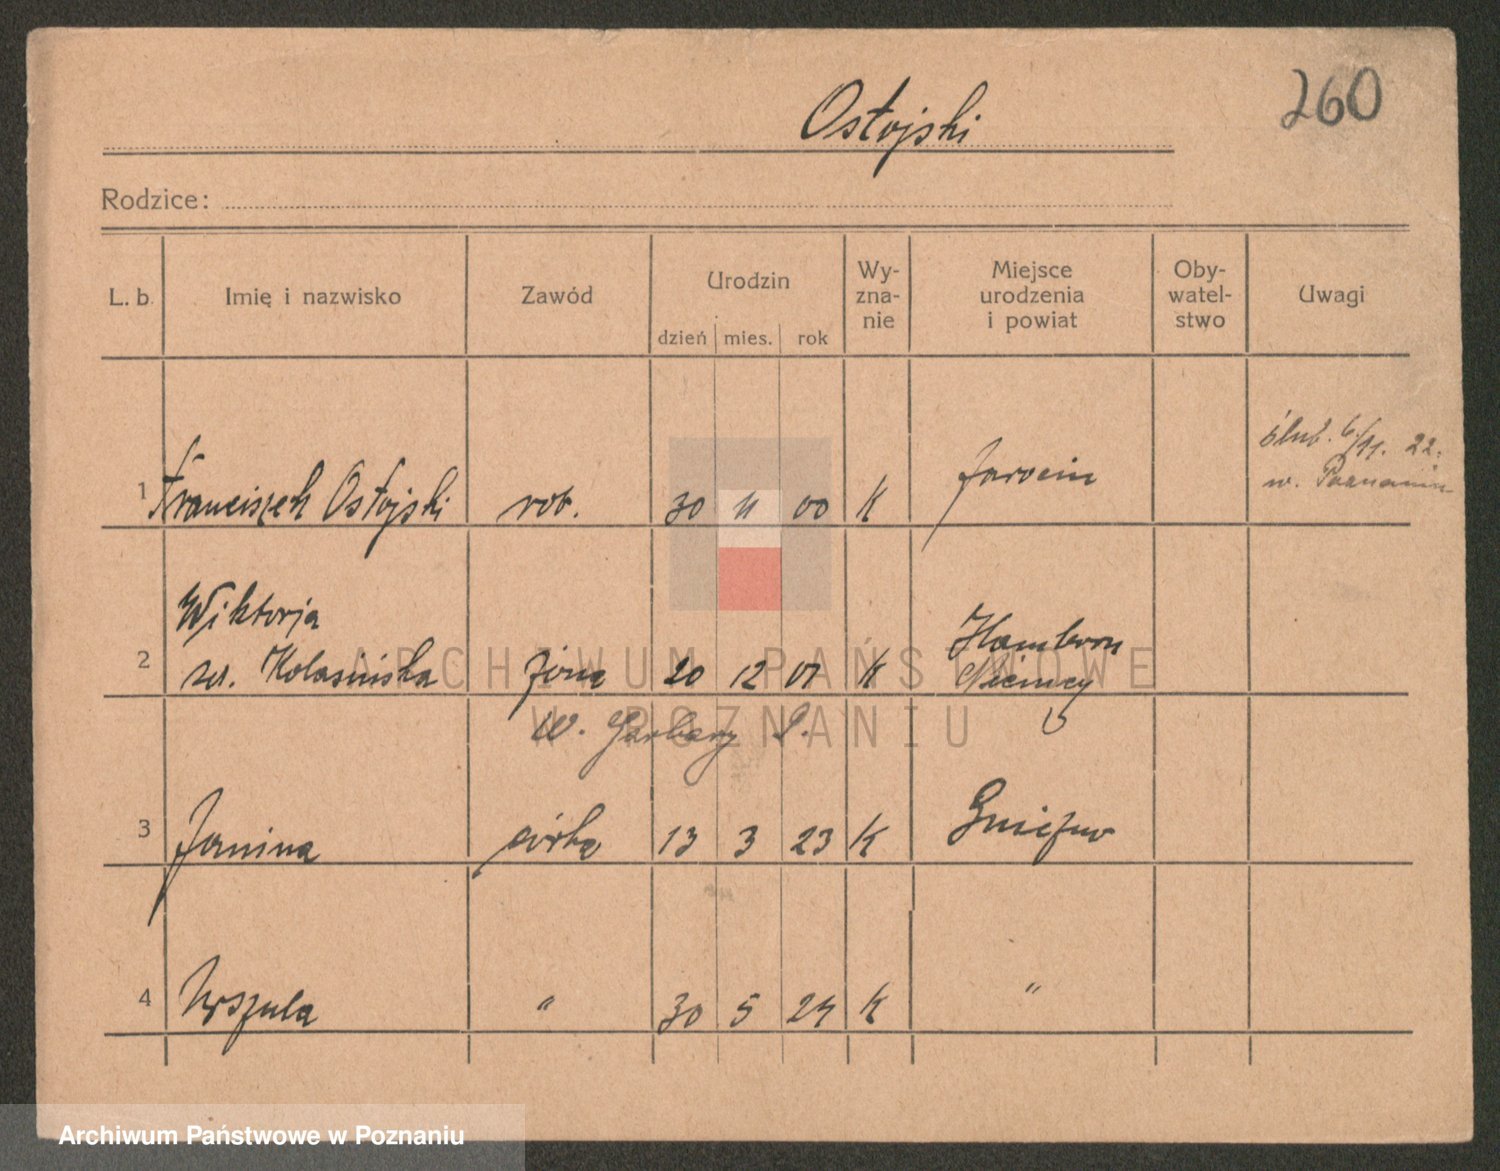 260
Ostojski
Rodzice:
L. b. Imię i nazwisko Zawód Urodzin dzień mies. rok Wy-zna-nie Miejsce urodzenia i powiat Oby-watel-stwo Uwagi
1 Franciszek Ostojski rob. 30 11 00 K Jarocin ślub. 6/11. 22. w. Poznaniu
2 Wiktorja
ur. Kolasińska żona 20 12 01 K Hamborn Niemcy
W. Garbary
3 Janina córka 13 3 23 K Gniezno
4 Urszula " 30 5 24 K "
ARCHIWUM PAŃSTWOWE
W POZNANIU
Archiwum Państwowe w Poznaniu